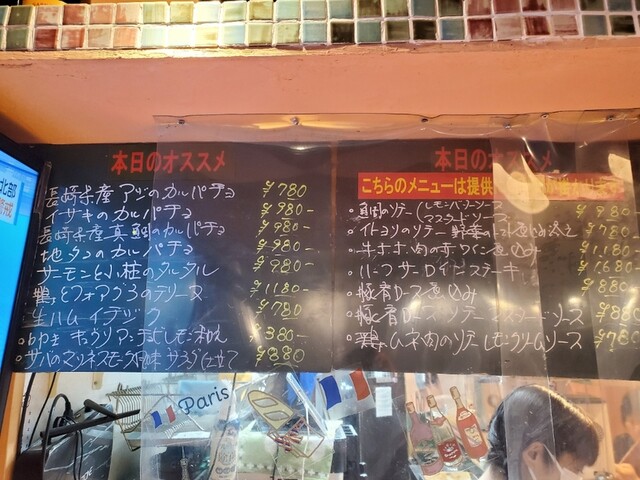 本日のオススメ
長崎県産 アジのカルパチョ ¥780
イサキのカルパチョ ¥980-
長崎県産真鯛のカルパチョ ¥980-
地タコのカルパチョ ¥980-
サーモンと小柱のタルタル ¥980-
鴨とフォアグラのテリーヌ ¥1180-
生ハム ¥780
キュウリ レモン和え ¥380-
サバのマリネ スモーク サラダ仕立て ¥880
本日のオススメ
こちらのメニューは提供
・真鯛のソテー (レモンバターソース ¥980
マスタードソース
・イトヨリのソテー 野菜の ¥980
・牛ホホ肉の赤ワイン煮込み ¥1,180
・ハーフサーロインステーキ ¥1,680-
・豚肩ロース煮込み ¥880
・豚肩ロースソテー マスタードソース ¥880
・鶏ムネ肉のソテーレモンクリームソース ¥780
北部
Paris